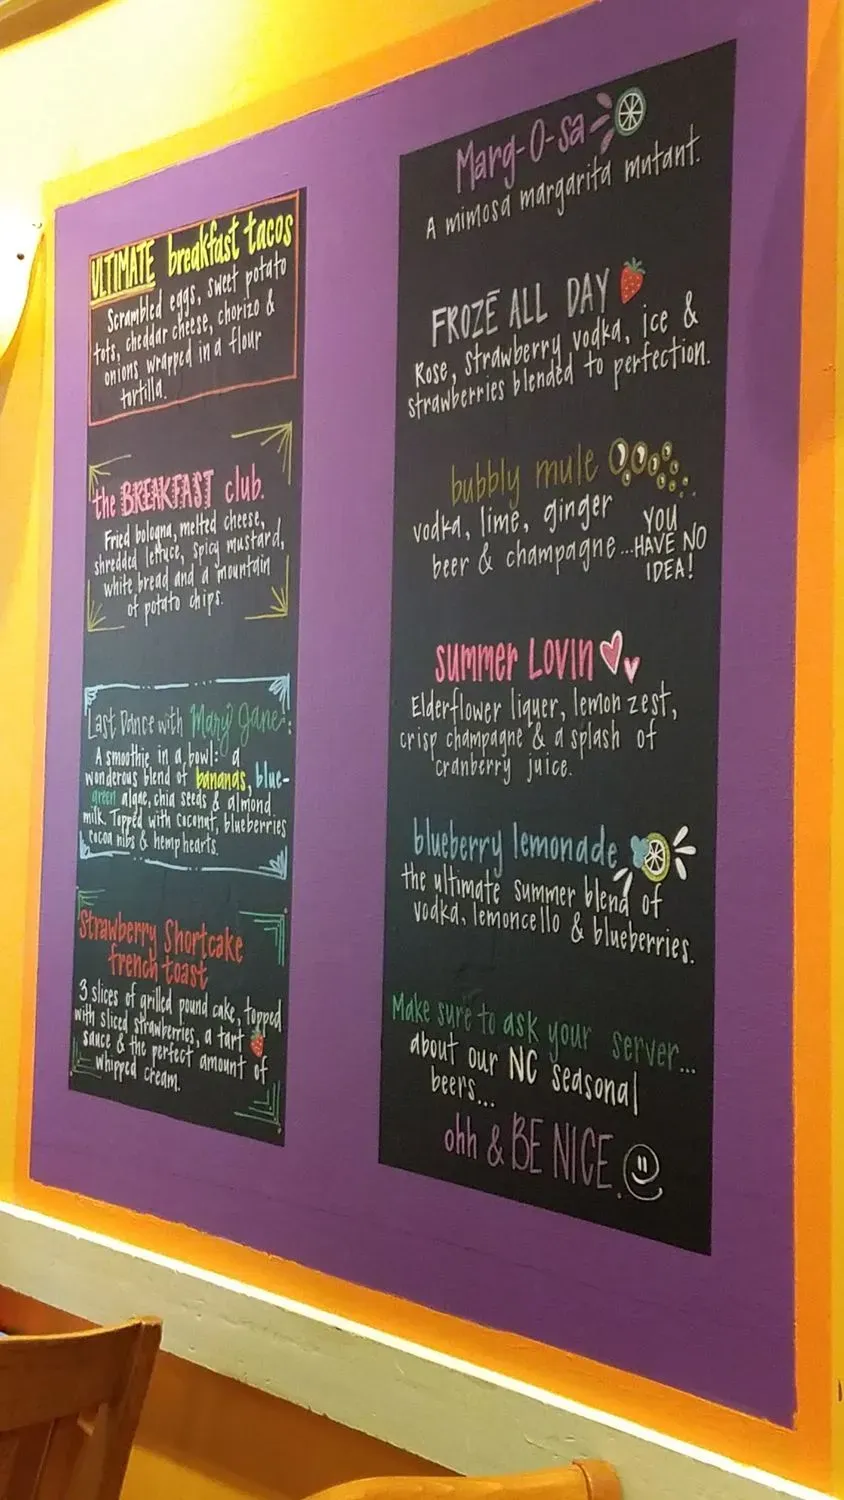 ULTIMATE breakfast tacos
Scrambled eggs, sweet potato
tots, cheddar cheese, chorizo &
onions wrapped in a flour
tortilla.
the BREAKFAST club.
Fried bologna, melted cheese,
shredded lettuce, spicy mustard,
white bread and a mountain
of potato chips.
Last Dance with Mary Jane:
A smoothie in a bowl: a
wonderous blend of bananas, blue-
green algae, chia seeds & almond
milk. Topped with coconut, blueberries
cocoa nibs & hemp hearts.
Strawberry Shortcake
french toast
3 slices of grilled pound cake, topped
with sliced strawberries, a tart
sauce & the perfect amount of
whipped cream.
Marg-O-sa
A mimosa margarita mutant.
FROZĒ ALL DAY
Rose, strawberry vodka, ice &
strawberries blended to perfection.
bubbly mule
vodka, lime, ginger
beer & champagne...
YOU
HAVE NO
IDEA!
summer LOVIN
Elderflower liquer, lemon zest,
crisp champagne & a splash of
cranberry juice.
blueberry lemonade
the ultimate summer blend of
vodka, lemoncello & blueberries.
Make sure to ask your server...
about our NC seasonal
beers...
ohh & BE NICE.